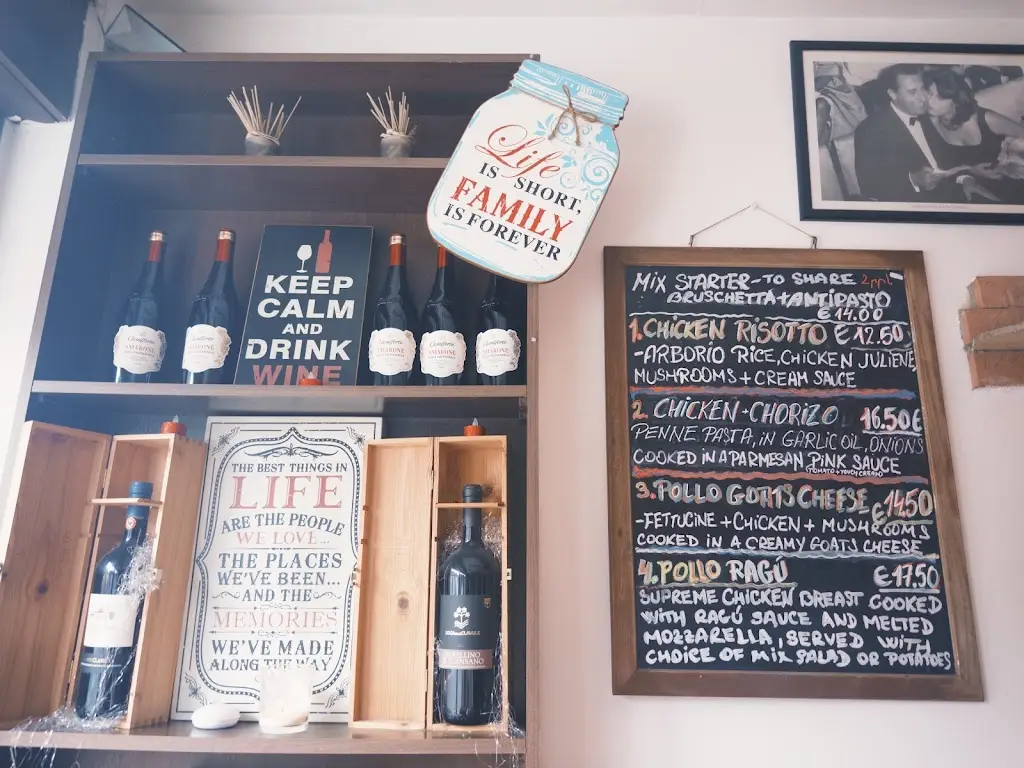 Life
IS SHORT,
FAMILY
IS FOREVER
KEEP
CALM
AND
DRINK
WINE
AMARONE
AMARONE
THE BEST THINGS IN
LIFE
ARE THE PEOPLE
WE LOVE...
THE PLACES
WE'VE BEEN...
AND THE
MEMORIES
WE'VE MADE
ALONG THE WAY
MIX STARTER - TO SHARE 2ppl
BRUSCHETTA + ANTIPASTO
€14.00
1. CHICKEN RISOTTO €12.50
-ARBORIO RICE, CHICKEN JULIENE,
MUSHROOMS + CREAM SAUCE
2. CHICKEN + CHORIZO 16.50€
PENNE PASTA, IN GARLIC OIL, ONIONS
COOKED IN A PARMESAN PINK SAUCE
3. POLLO GOATS CHEESE €14.50
-FETTUCINE + CHICKEN + MUSHROOMS
COOKED IN A CREAMY GOATS CHEESE
4. POLLO RAGÚ €17.50
SUPREME CHICKEN BREAST COOKED
WITH RAGÚ SAUCE AND MELTED
MOZZARELLA, SERVED WITH
CHOICE OF MIX SALAD OR POTATOES